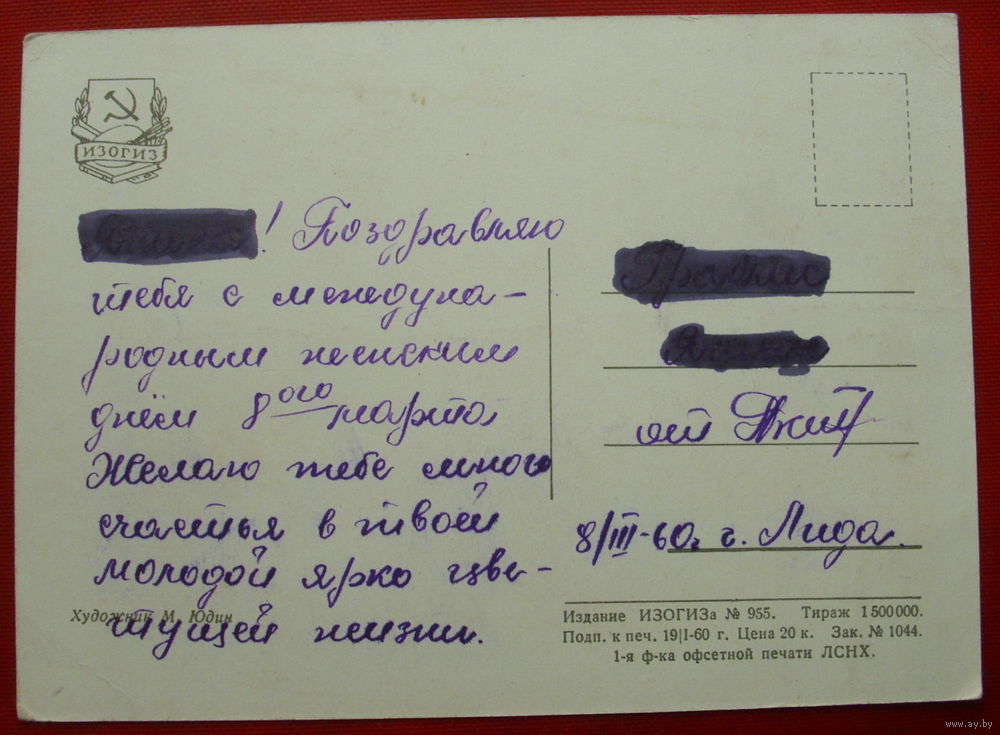 ИЗОГИЗ
! Поздравляю
тебя с междуна-
родным женским
днём 8ого марта
Желаю тебе много
счастья в твоей
молодой ярко цве-
тущей жизни.
от
8/III-60 г. г. Лида.
Художник М. Юдин
Издание ИЗОГИЗа № 955. Тираж 1 500 000.
Подп. к печ. 19|I-60 г. Цена 20 к. Зак. № 1044.
1-я ф-ка офсетной печати ЛСНХ.
www.ay.by